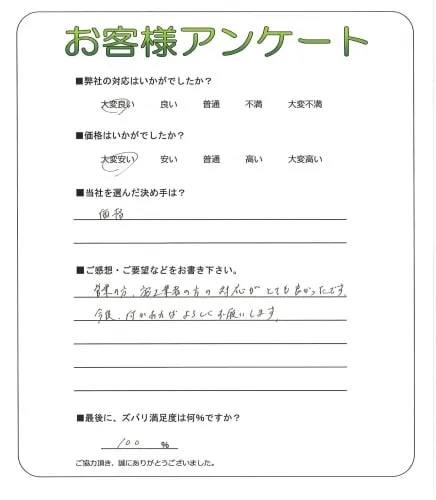 お客様アンケート
■弊社の対応はいかがでしたか？
大変良い 良い 普通 不満 大変不満
■価格はいかがでしたか？
大変安い 安い 普通 高い 大変高い
■当社を選んだ決め手は？
価格
■ご感想・ご要望などをお書き下さい。
営業の方、施工業者の方の対応がとても良かったです。
今後、何かあればよろしくお願いします。
■最後に、ズバリ満足度は何％ですか？
100 ％
ご協力頂き、誠にありがとうございました。